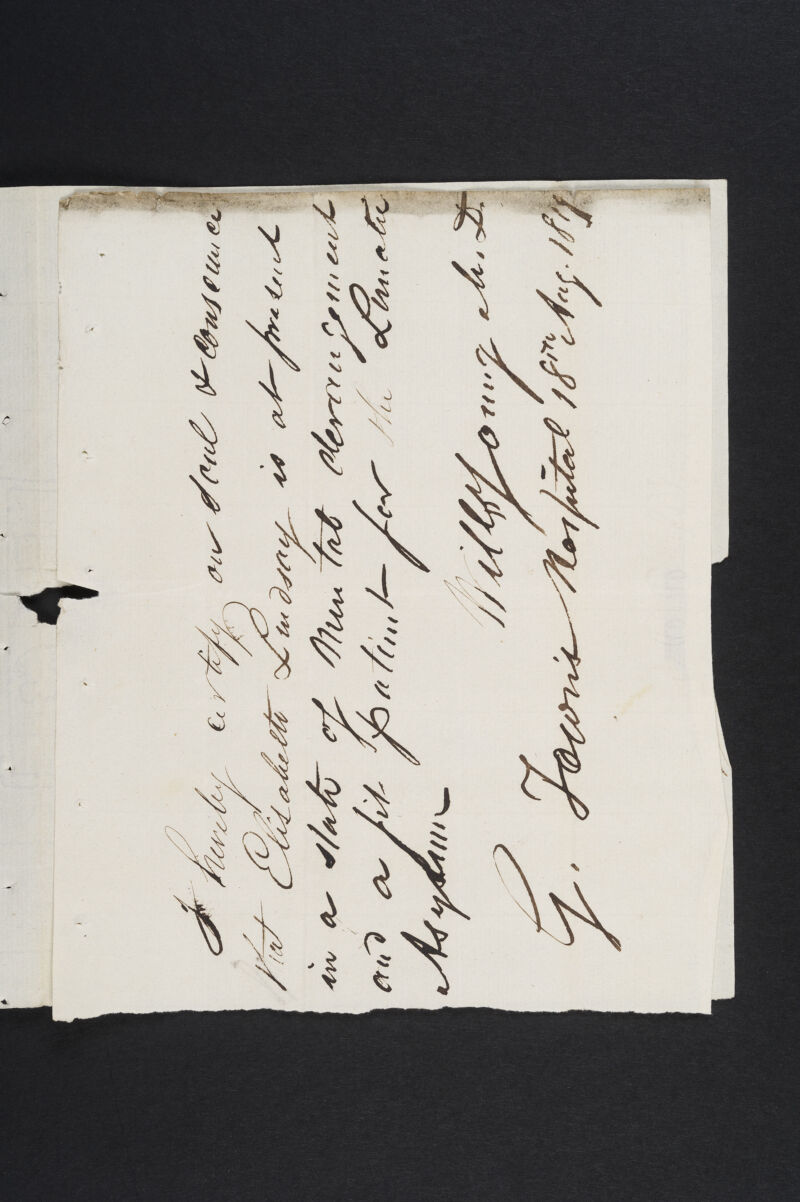 I hereby certify on Soul & Consience
that Elisabeth Lindsay is at present
in a state of Mental derangement
and a fit patient for the Lunatic
Asylum
Will Young M.D.
G. Town's Hospital 18th Aug.